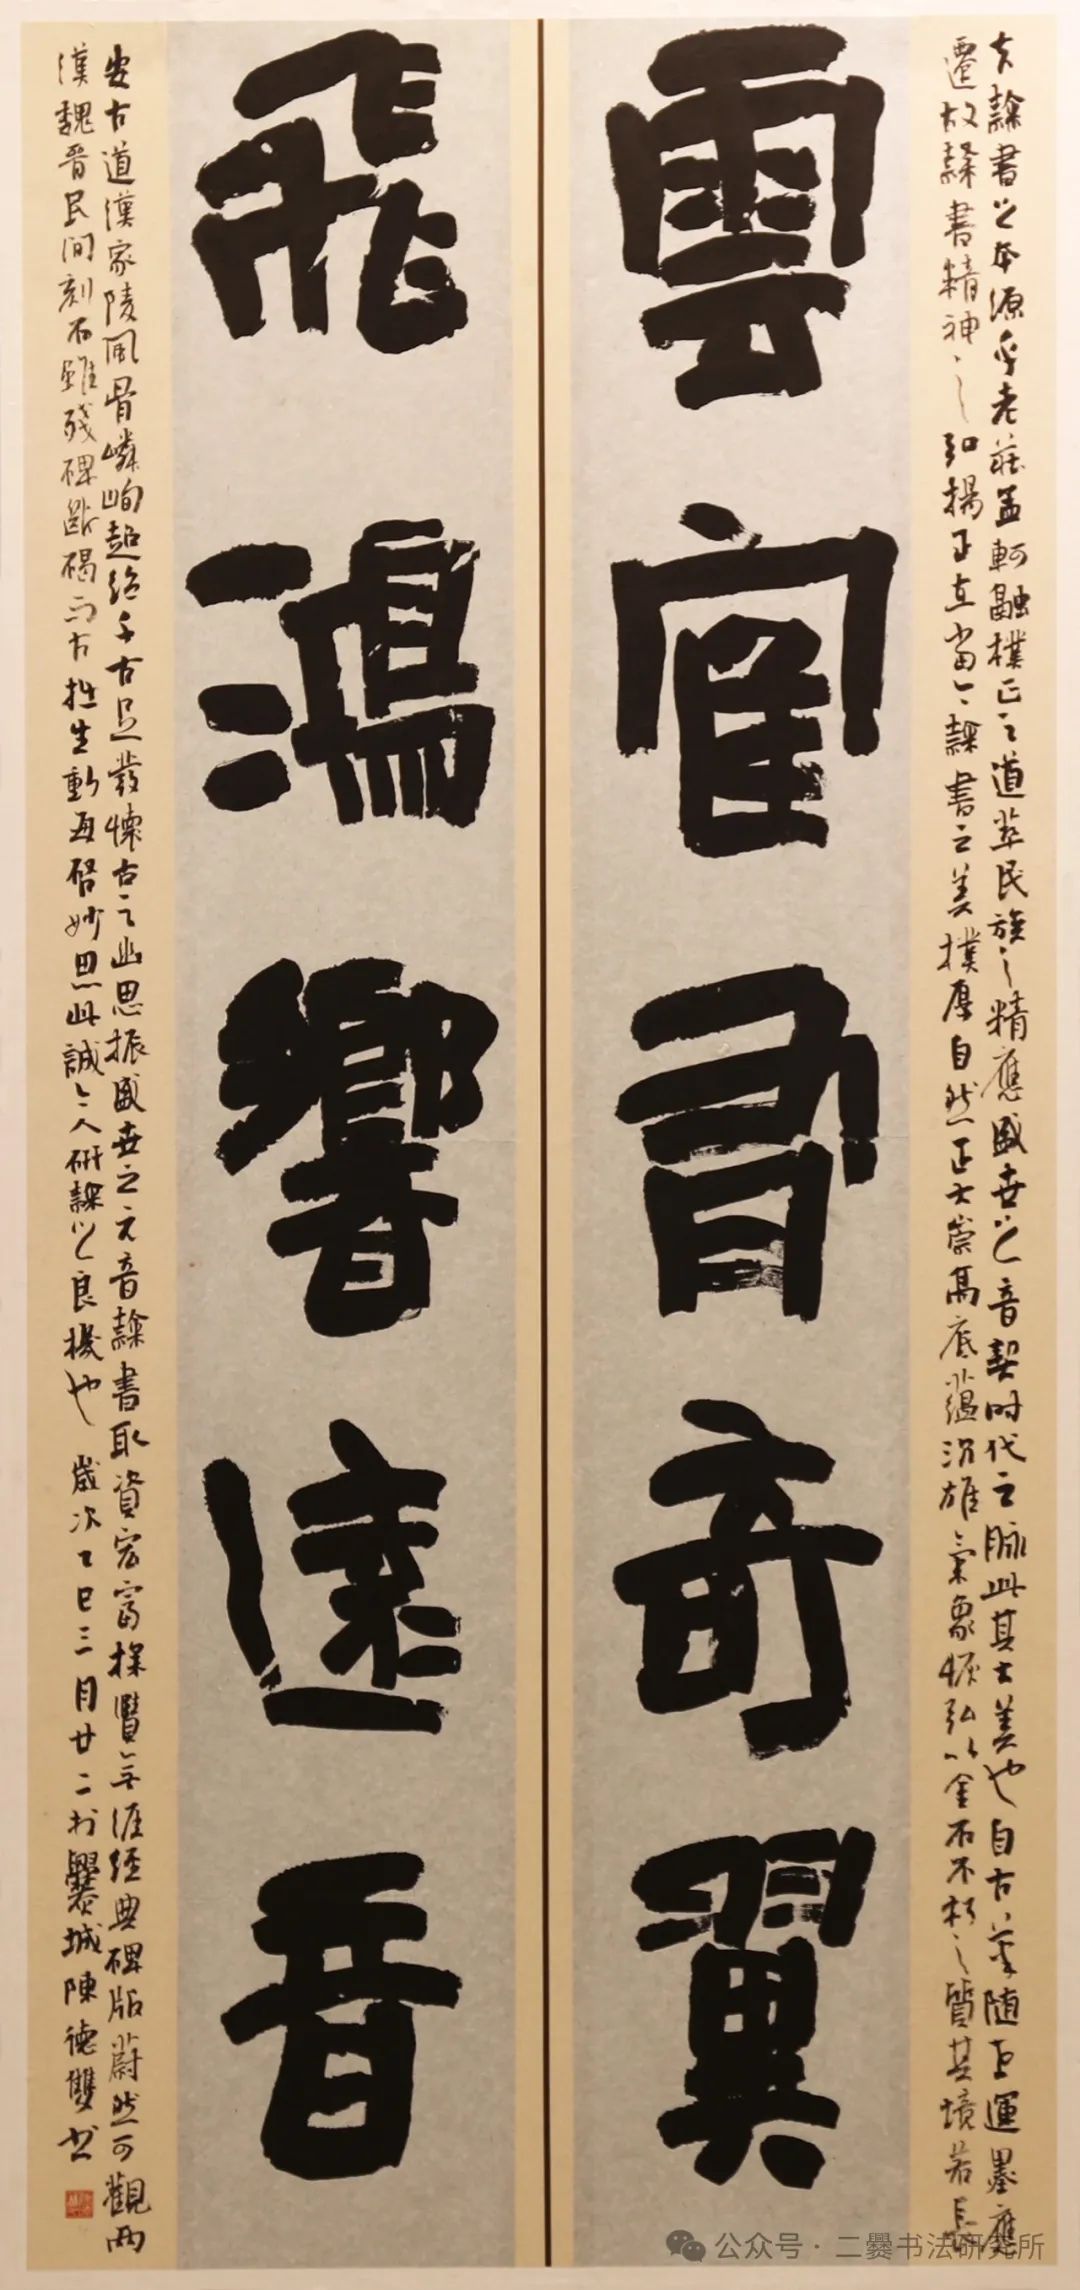 夫隸書之本源乎老莊孟軻融樸正之道萃民族之精應盛世之音契時代之脈此其大美也自古筆隨世運墨應
遷故隸書精神之弘揚正在當今隸書之美樸厚自然正大崇高底蘊沉雄氣象恢弘以金石不朽之質其境若長
雲隺有奇翼
飛鴻響遠音
安古道漢家陵風骨嶙峋超絕千古足發懷古之幽思振盛世之元音隸書取資宏富採覽無涯經典碑版蔚然可觀兩
漢魏晉民間刻石雖殘碑斷碣而古拙生動每啓妙思此誠今人研隸之良機也 歲次乙巳三月廿二於爨城陳德雙書
公众号·二爨书法研究所